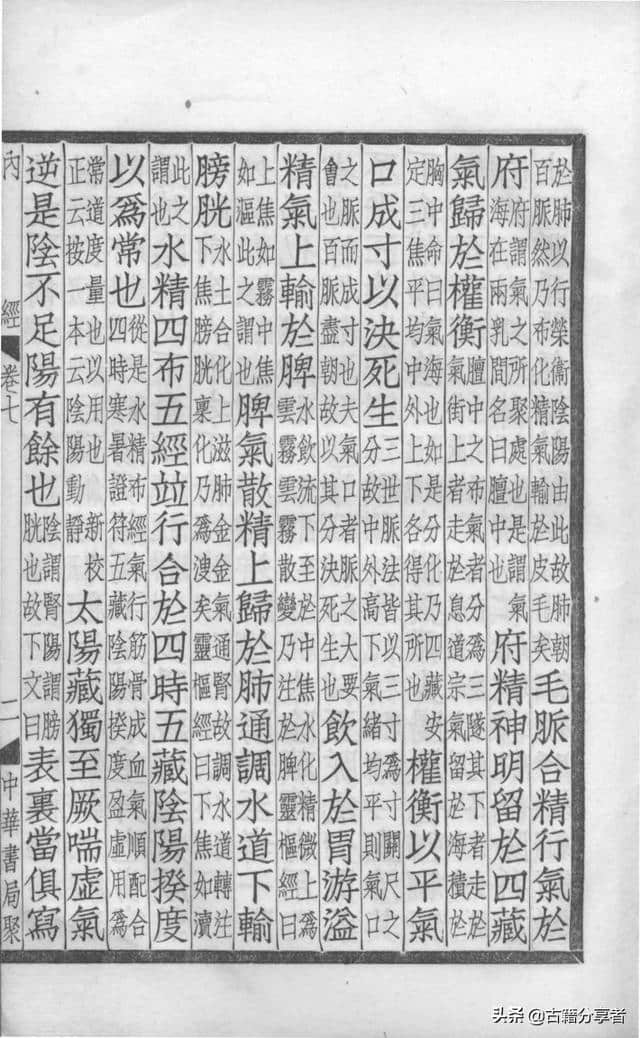 於肺以行榮衞陰陽由此故肺朝
百脈然乃布化精氣輸於皮毛矣
毛脈合精行氣於
府
府謂氣之所聚處也是謂氣
海在兩乳間名曰膻中也
府精神明留於四藏
氣歸於權衡
膻中之布氣者分爲三隧其下者走於
氣街上者走於息道宗氣留於海積於
胸中命曰氣海也如是分化乃四藏安
定三焦平均中外上下各得其所也
權衡以平氣
口成寸以決死生
三世脈法皆以三寸爲寸關尺之
分故中外高下氣緒均平則氣口
之脈而成寸也夫氣口者脈之大要
會也百脈盡朝故以其分決死生也
飲入於胃游溢
精氣上輸於脾
水飲流下至於中焦水化精微上爲
雲霧雲霧散變乃注於脾靈樞經曰
上焦如霧中焦
如漚此之謂也
脾氣散精上歸於肺通調水道下輸
膀胱
水土合化上滋肺金金氣通腎故調水道轉注
下焦膀胱稟化乃爲溲矣靈樞經曰下焦如瀆
此之
謂也
水精四布五經並行合於四時五藏陰陽揆度
以爲常也
從是水精布經氣行筋骨成血氣順配合
四時寒暑證符五藏陰陽揆度盈虛用爲
常道度量也以用也新校
正云按一本云陰陽動靜
太陽藏獨至厥喘虛氣
逆是陰不足陽有餘也
陰謂腎陽謂膀
胱也故下文曰
表裏當俱寫
內經
卷七
二
中華書局聚
头条 @古籍分享者